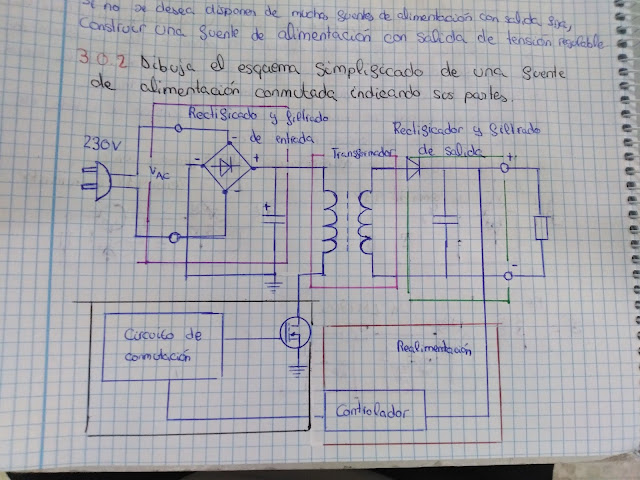 si no se desea disponer de muchas fuentes de alimentación con salida fija,
Construir una fuente de alimentación con salida de tensión regolable
3.0.2 Dibuja el esquema simplificado de una fuente
de alimentación conmutada indicando sus partes.
Rectificado y filtrado
de entrada
Rectificador y filtrado
de salida
Transformador
230V
VAC
-
-
+
-
+
+
-
Circuito de
conmutación
Realimentación
Controlador